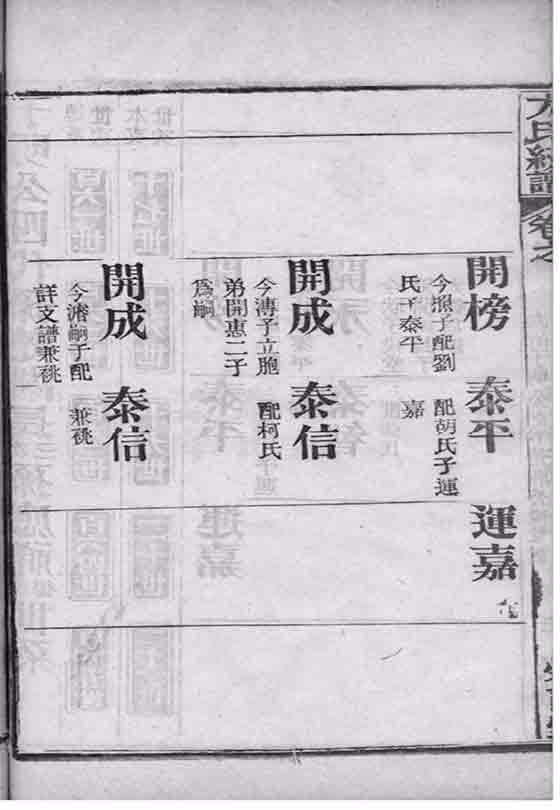 方氏統譜 卷之
開榜
今照子配劉
氏子泰平
泰平
配胡氏子連
嘉
運嘉
開成
今溥子立胞
弟開惠二子
為嗣
泰信
配柯氏
開成
今濬嗣子配
詳文譜兼祧
泰信
兼祧